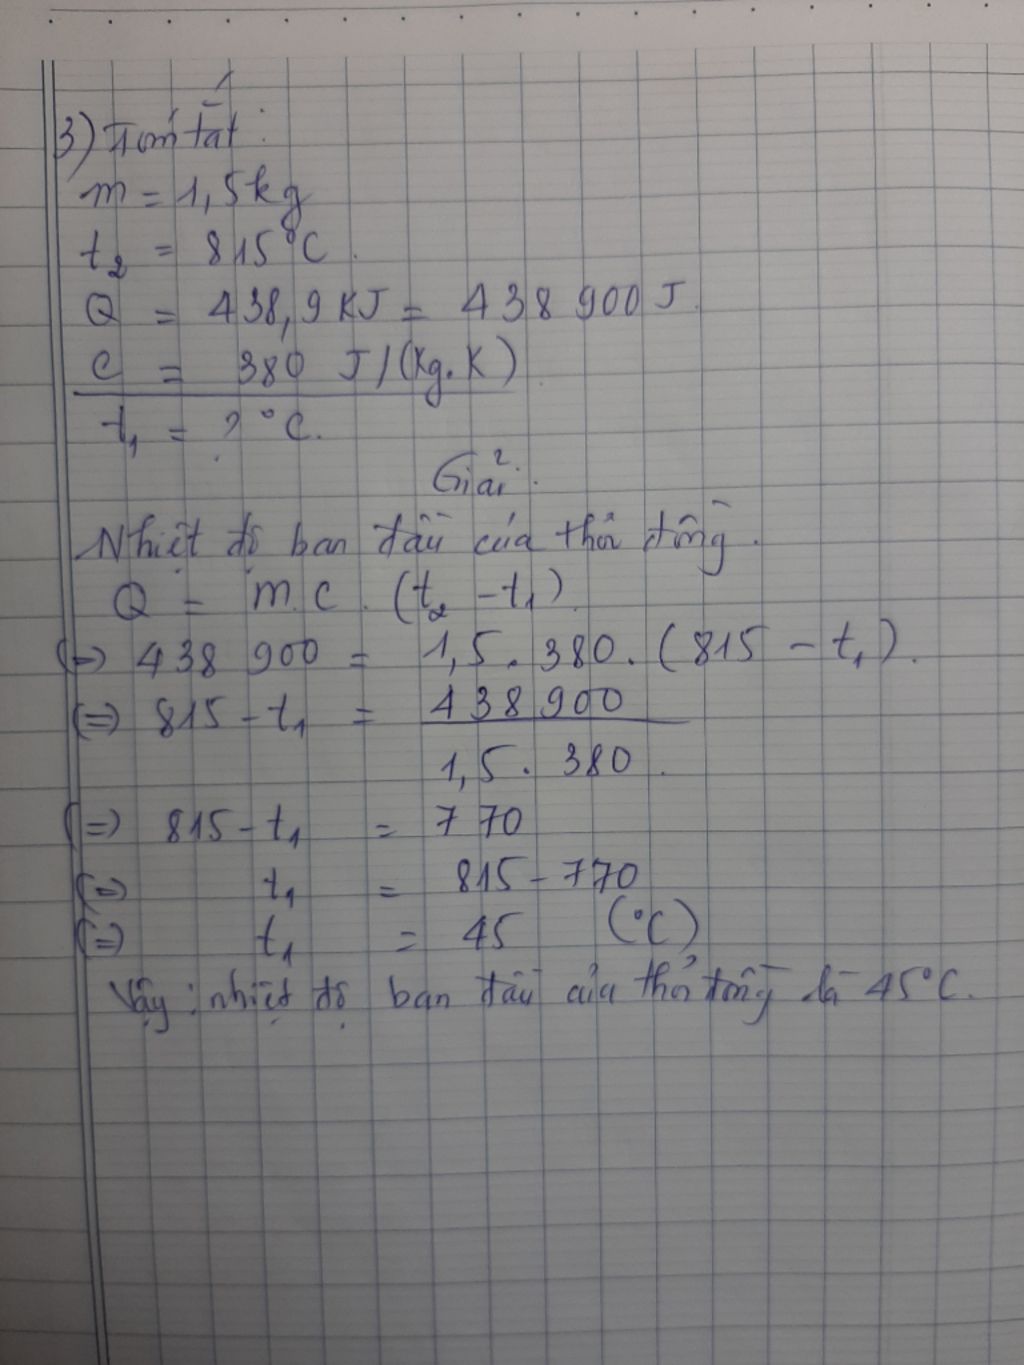 3) Tóm tắt:
m = 1,5kg
t₂ = 815°C.
Q = 438,9 KJ = 438 900 J.
C = 380 J/(Kg.K)
t₁ = ? °C.
Giải:
Nhiệt độ ban đầu của thỏi đồng.
Q = m.C.(t₂ - t₁)
(=) 438 900 = 1,5 . 380 . (815 - t₁).
(=) 815 - t₁ = 438 900
1,5 . 380.
(=) 815 - t₁ = 770
(=) t₁ = 815 - 770
(=) t₁ = 45 (°C)
Vậy: nhiệt độ ban đầu của thỏi đồng là 45°C.